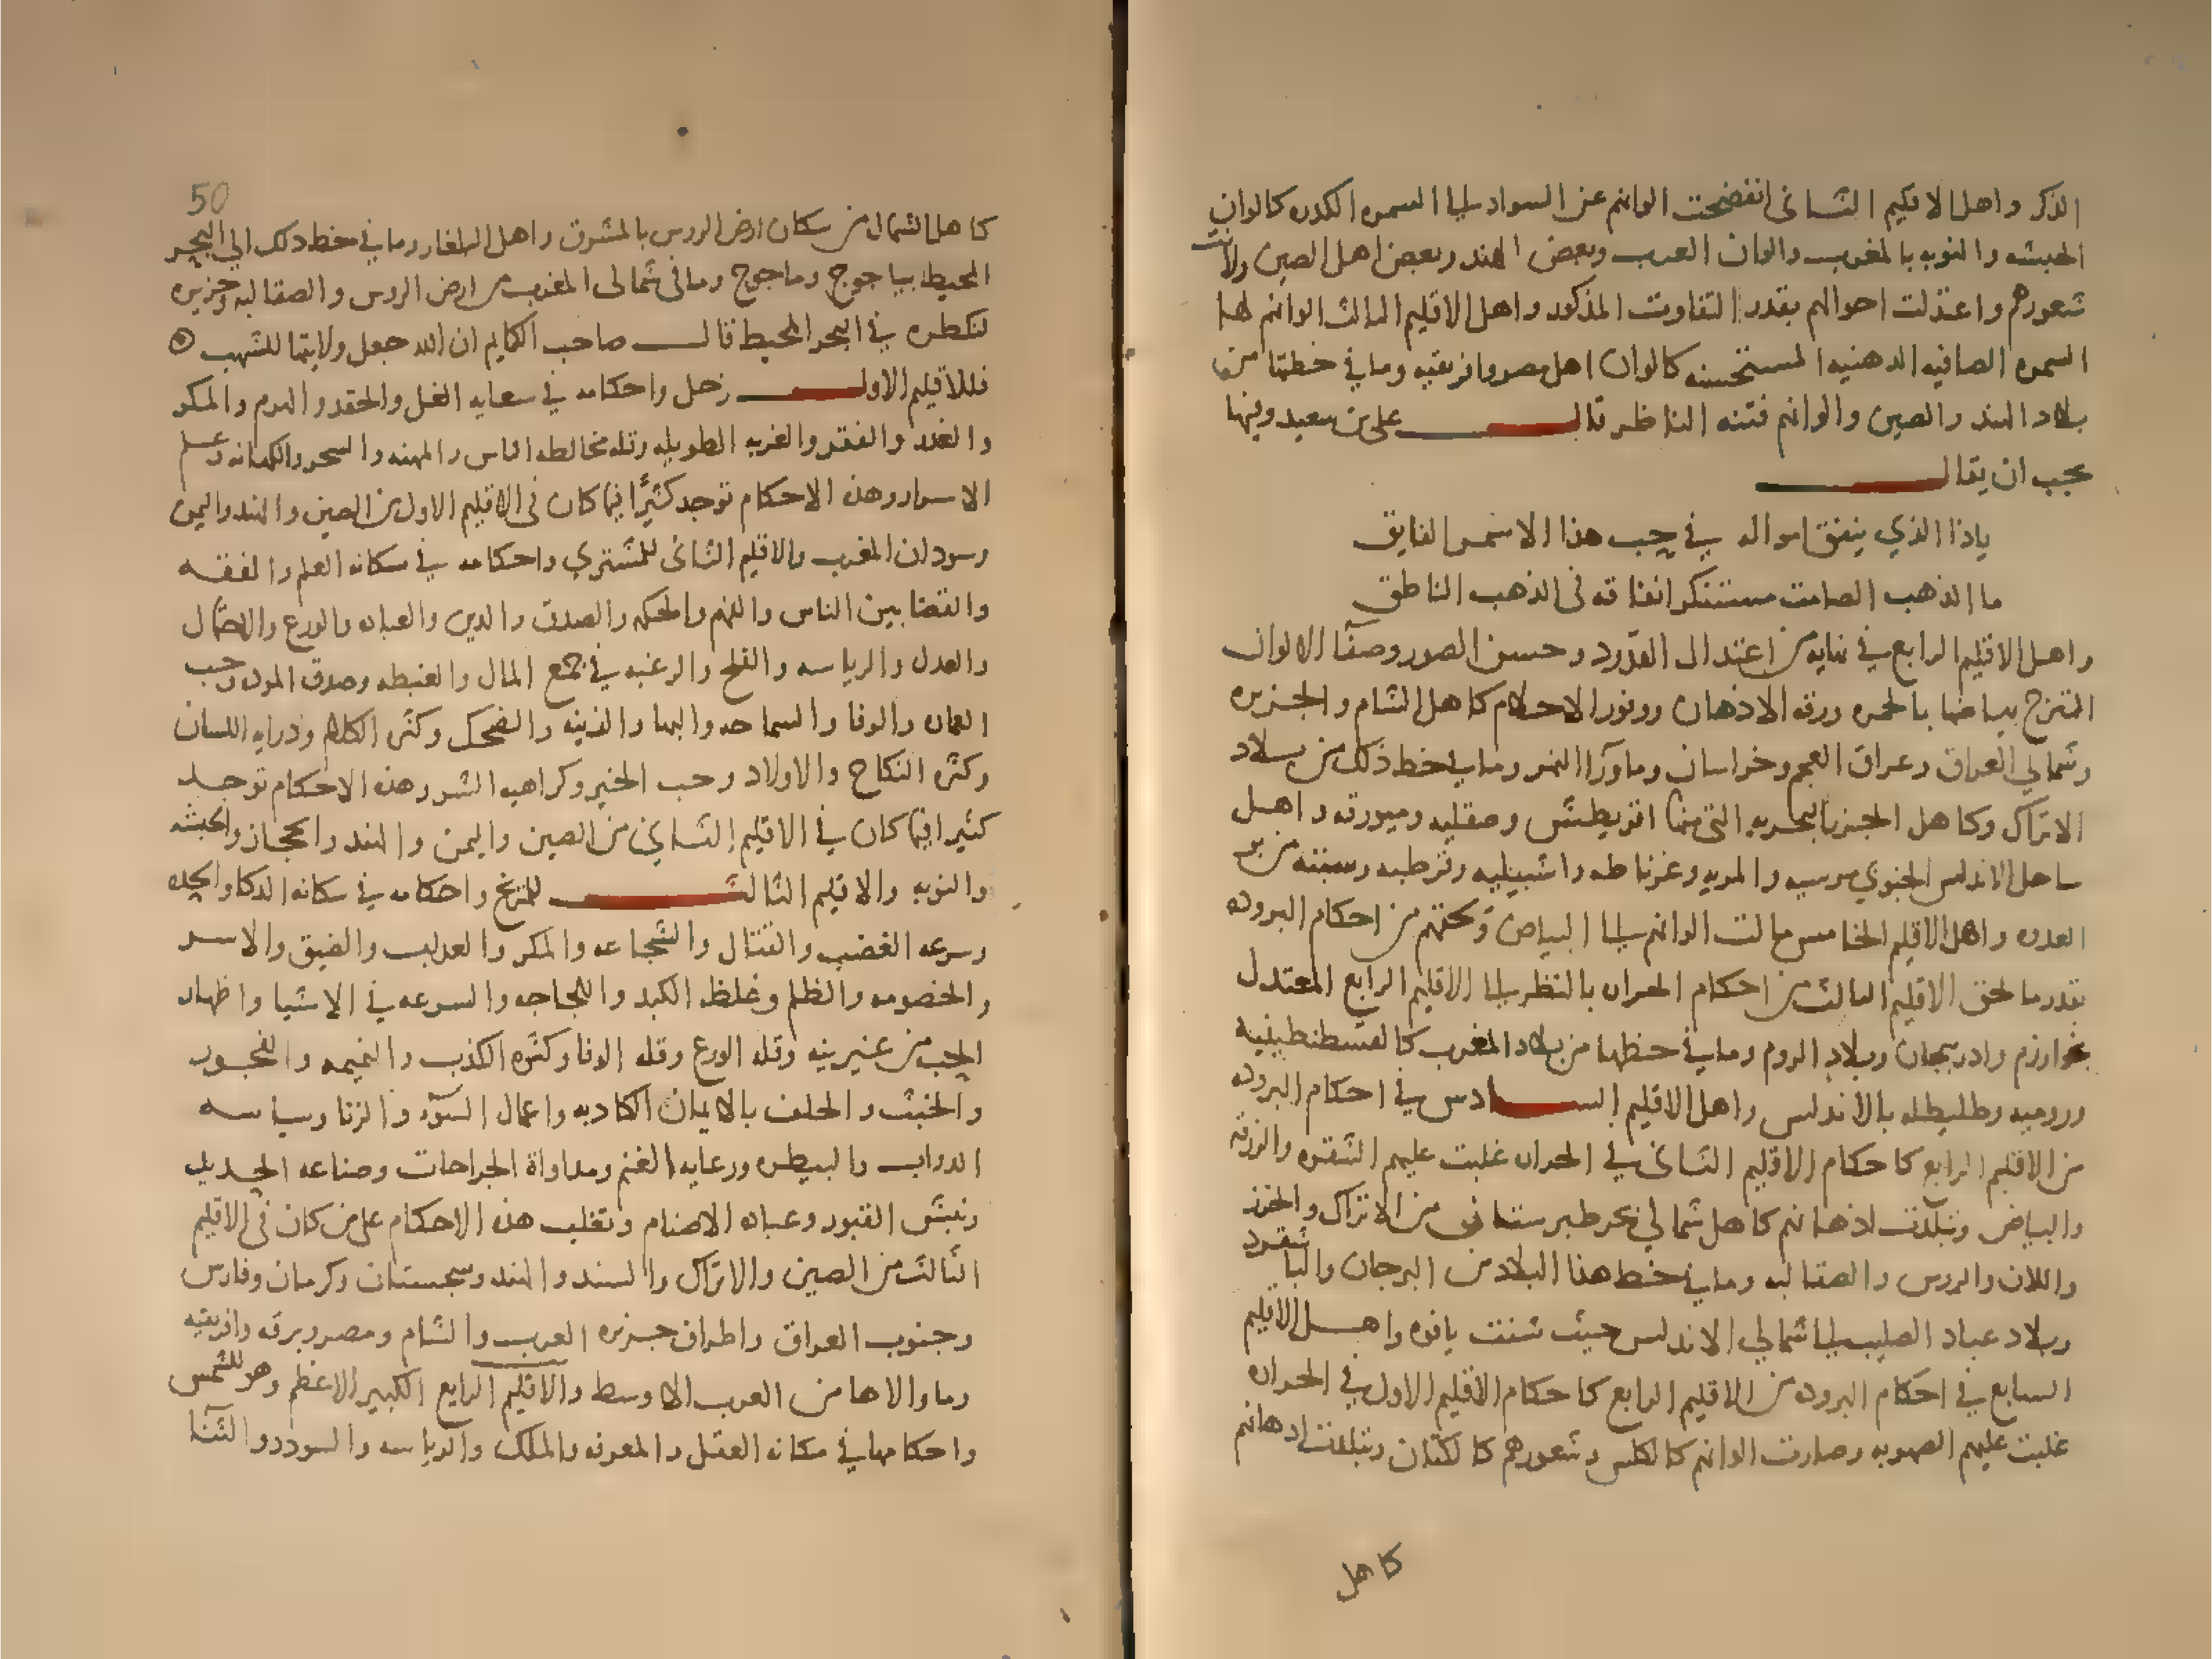 الذكر واهل الاقليم الثانى انفضحت الوانهم عن السواد الى السمره الكدره كالوان
الحبشه والنوبه بالمغرب والوان العرب وبعض الهند وبعض اهل الصين ولانت
شعورهم واعتدلت احوالهم بقدر التفاوت المذكور واهل الاقليم الثالث الوانهم لها
السمره الصافيه الدهنيه المستحسنه كالوان اهل مصر وافريقيه وما في خطتها من
بلاد الهند والصين والوانهم فتنه الناظر قال على بن سعيد وفيها
يجب ان يقال
ياذا الذي ينفق امواله في حب هذا الاسمر الفايق
ما الذهب الصامت مستنكر انفاقه فى الذهب الناطق
واهل الاقليم الرابع في نهايه من اعتدال القدود وحسن الصور وصفآ الالوان
الممتزج بياضها بالحمره ورقه الاذهان ووفور الاحلام كاهل الشام والجزيره
وشمالي العراق وعراق العجم وخراسان وماورآ النهر وما في خط ذلك من بلاد
الاتراك وكاهل الجزر البحريه التى منها اقريطش وصقليه وميورقه واهل
ساحل الاندلس الجنوي مرسيه والمريه وغرناطه واشبيليه وقرطبه وسبته من بر
العدوه واهل الاقليم الخامس مالت الوانهم الى البياض ولحقهم من احكام البروده
بقدر ما لحق الاقليم الثالث من احكام الحراره بالنظر الى الاقليم الرابع المعتدل
بخوارزم وادربيجان وبلاد الروم وما في خطها من بلاد المغرب كالقسطنطينيه
وروميه وطليطله بالاندلس واهل الاقليم السادس في احكام البروده
من الاقليم الرابع كاحكام الاقليم الثانى في الحراره غلبت عليهم الشقره والزرقه
والبياض وتبلدت اذهانهم كاهل شمالي بحر طبرستان من الاتراك والخزر
واللان والروس والصقالبه وما في خط هذا البلاد من البرجان والباشقرد
وبلاد عباد الصليب الى شمالي الاندلس حيث شنت ياقوه واهل الاقليم
السابع في احكام البروده من الاقليم الرابع كاحكام الاقليم الاول في الحراره
غلبت عليهم الصهوبه وصارت الوانهم كالكلس وشعورهم كالكتان وتبلدت اذهانهم
كاهل
50
كاهل الشمال من سكان ارض الروس بالمشرق واهل البلغار وما في خط ذلك الي البحر
المحيط بياجوج وماجوج وما فى شمالى المغرب من ارض الروس والصقالبه وجزيره
لنكطره في البحر المحيط قال صاحب الكمايم ان الله جعل ولايتها للشهب
فللاقليم الاول زحل واحكامه في سعايه الغل والحقد والهرم والمكر
والغدر والفقر والغربه الطويله وقله مخالطه الناس والمهنه والسحر والكهانه وعلم
الاسرار وهذه الاحكام توجد كثيرًا فيما كان فى الاقليم الاول من الصين والهند واليمن
وسودان المغرب والاقليم الثانى للمشتري واحكامه في سكانه العلم والفقه
والقضا بين الناس والفهم والحكمه والصدق والدين والعباده والورع والاحتمال
والعدل والرياسه والفلح والرغبه في جمع المال والغبطه وصدق الموده وحب
العماره والوفا والسماحه والبها والزينه والضحك وكثره الكلام وذرابه اللسان
وكثره النكاح والاولاد وحب الخير وكراهيه الشر وهذه الاحكام توجد
كثيرا فيما كان في الاقليم الثانى من الصين واليمن والهند والحجاز والحبشه
والنوبه والاقليم الثالث للمريخ واحكامه في سكانه الذكا والحده
وسرعه الغضب والقتال والشجاعه والمكر والعداب والضيق والاسر
والخصومه والظلم وغلظ الكبد واللجاجه والسرعه في الاشيا واظهار
الحب من غير نيه وقله الورع وقله الوفا وكثره الكذب والنميمه والفجور
والخبث والحلف بالايمان الكاذبه واعمال السوٓء والزنا وسياسه
الدواب والبيطره ورعايه الغنم ومداواة الجراحات وصناعه الحديد
ونبش القبور وعباده الاصنام وتغلب هذه الاحكام على من كان فى الاقليم
الثالث من الصين والاتراك والسند والهند وسجستان وكرمان وفارس
وجنوب العراق واطراف جزيره العرب والشام ومصر وبرقه وافريقيه
وما والاها من الغرب الاوسط والاقليم الرابع الكبير الاعظم وهو للشمس
واحكامها في سكانه العقل والمعرفه والملك والرياسه والسودد والثنا